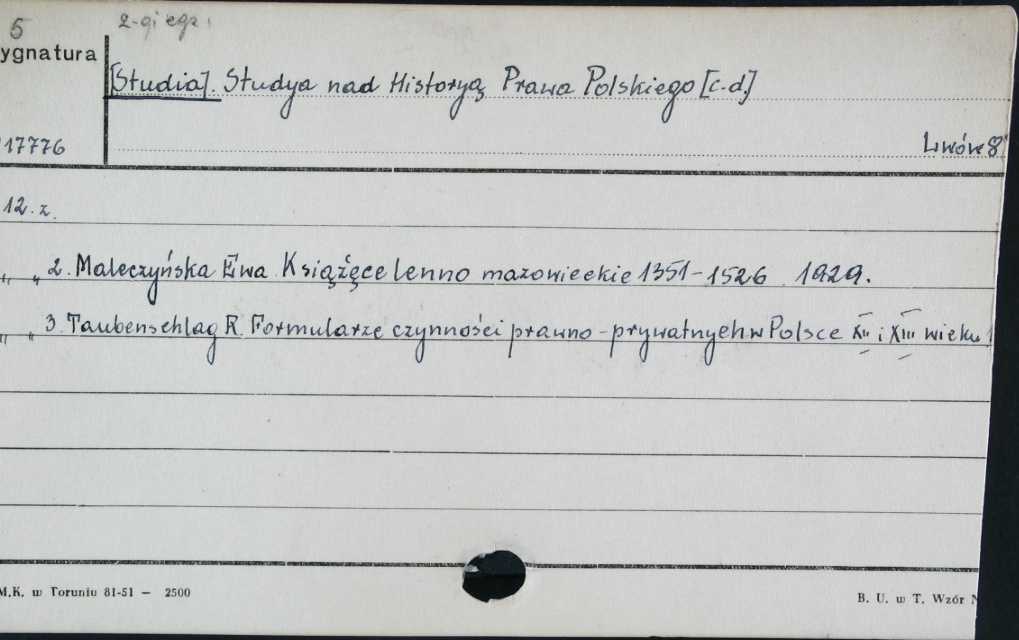 5 2-gi egz.
ygnatura
[Studia]. Studya nad Historyą Prawa Polskiego [c.d.]
17776 Lwów 8°
12. z.
„ „ 2. Maleczyńska Ewa. Książęce lenno mazowieckie 1351-1526. 1929.
„ „ 3. Taubenschlag R. Formularze czynności prawno-prywatnych w Polsce XII i XIII wieku
M.K. w Toruniu 81-51 — 2500
B. U. w T. Wzór